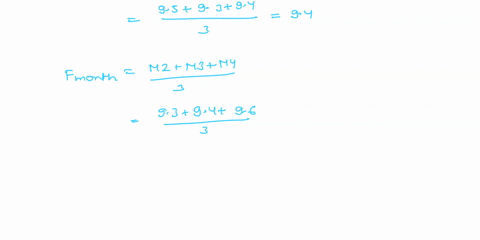 = 9.5 + 9.3 + 9.4 / 3 = 9.4
Fmonth = M2 + M3 + M4 / 3
= 9.3 + 9.4 + 9.6 / 3